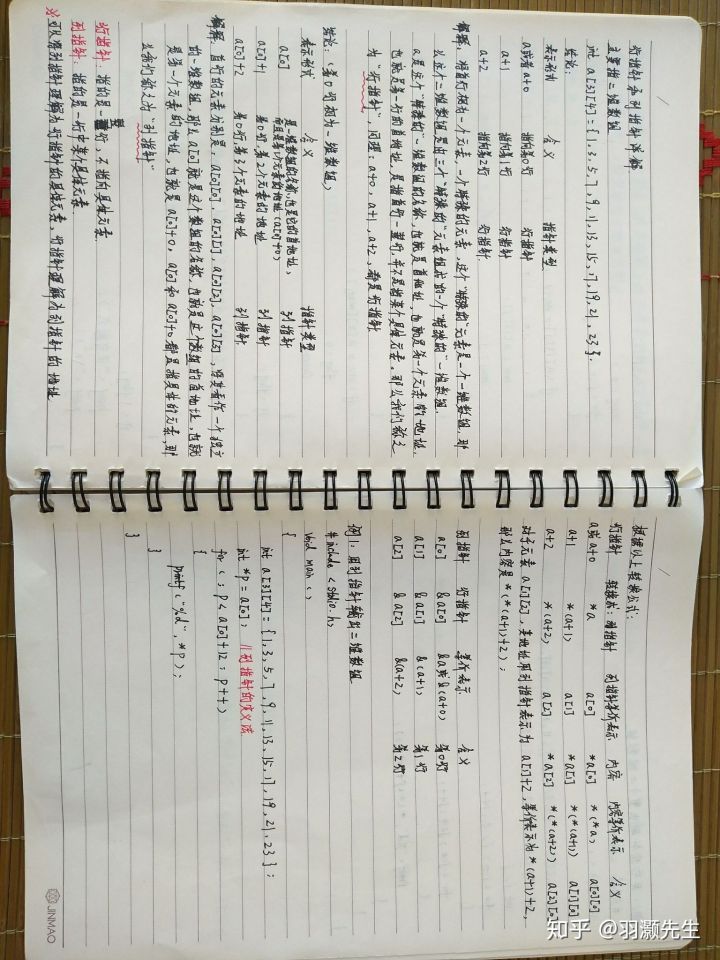 行指针和列指针详解
主要指二维数组
int a[3][4]={1,3,5,7,9,11,13,15,17,19,21,23};
结论:
表示形式 含义 指针类型
a或者a+0 指向第0行 行指针
a+1 指向第1行 行指针
a+2 指向第2行 行指针
解释: 将首行视为一个元素,一个特殊的元素,这个“特殊的”元素是一个一维数组,那
么这个二维数组是由三个“特殊的”元素组成的一个“特殊的”一维数组.
a是这个“特殊的”一维数组的名称,也就是首地址,也就是第一个元素的地址,
也就是第一行的首地址,是指首行一整行,并不是指某个具体元素.那么我们称之
为“行指针”,同理: a+0, a+1, a+2, 都是行指针
结论: (第0行视为一维数组)
表示形式 含义 指针类型
a[0] 是一维数组的名称,也是它的首地址,
而且是第1个元素的地址(a[0]+0) 列指针
a[0]+1 第0行,第2个元素的地址 列指针
a[0]+2 第0行,第3个元素的地址 列指针
解释: 首行的元素分别是: a[0][0], a[0][1], a[0][2], a[0][3], 将其看作一个独立
的一维数组,那么a[0]就是这个数组的名称,也就是这个数组的首地址,也就
是第一个元素的地址,也就是a[0]+0. a[0]和a[0]+0都是指具体的元素,那
么我们称之为“列指针”
行指针: 指的是一整行,不指向具体元素.
列指针: 指的是一行中某个具体元素.
※ 可以将列指针理解为行指针的具体元素,行指针理解为列指针的地址
根据以上转换公式:
行指针 转换成:列指针 列指针等价表示 内容 内容等价表示 含义
a或a+0 *a a[0] *a[0] *(*a) a[0][0]
a+1 *(a+1) a[1] *a[1] *(*(a+1)) a[1][0]
a+2 *(a+2) a[2] *a[2] *(*(a+2)) a[2][0]
对于元素a[1][2], 其地址用列指针表示为 a[1]+2, 等价表示为*(a+1)+2,
那么内容是*(*(a+1)+2);
列指针 行指针 等价表示 含义
a[0] &a[0] &a或&(a+0) 第0行
a[1] &a[1] &(a+1) 第1行
a[2] &a[2] &(a+2) 第2行
例1: 用列指针输出二维数组
#include <stdio.h>
Void main()
{
int a[3][4]={1,3,5,7,9,11,13,15,17,19,21,23};
int *p=a[0]; //列指针的定义法
for(; p<a[0]+12; p++)
{
printf("%d", *p);
}
}
JINMAO
知乎 @羽灏先生